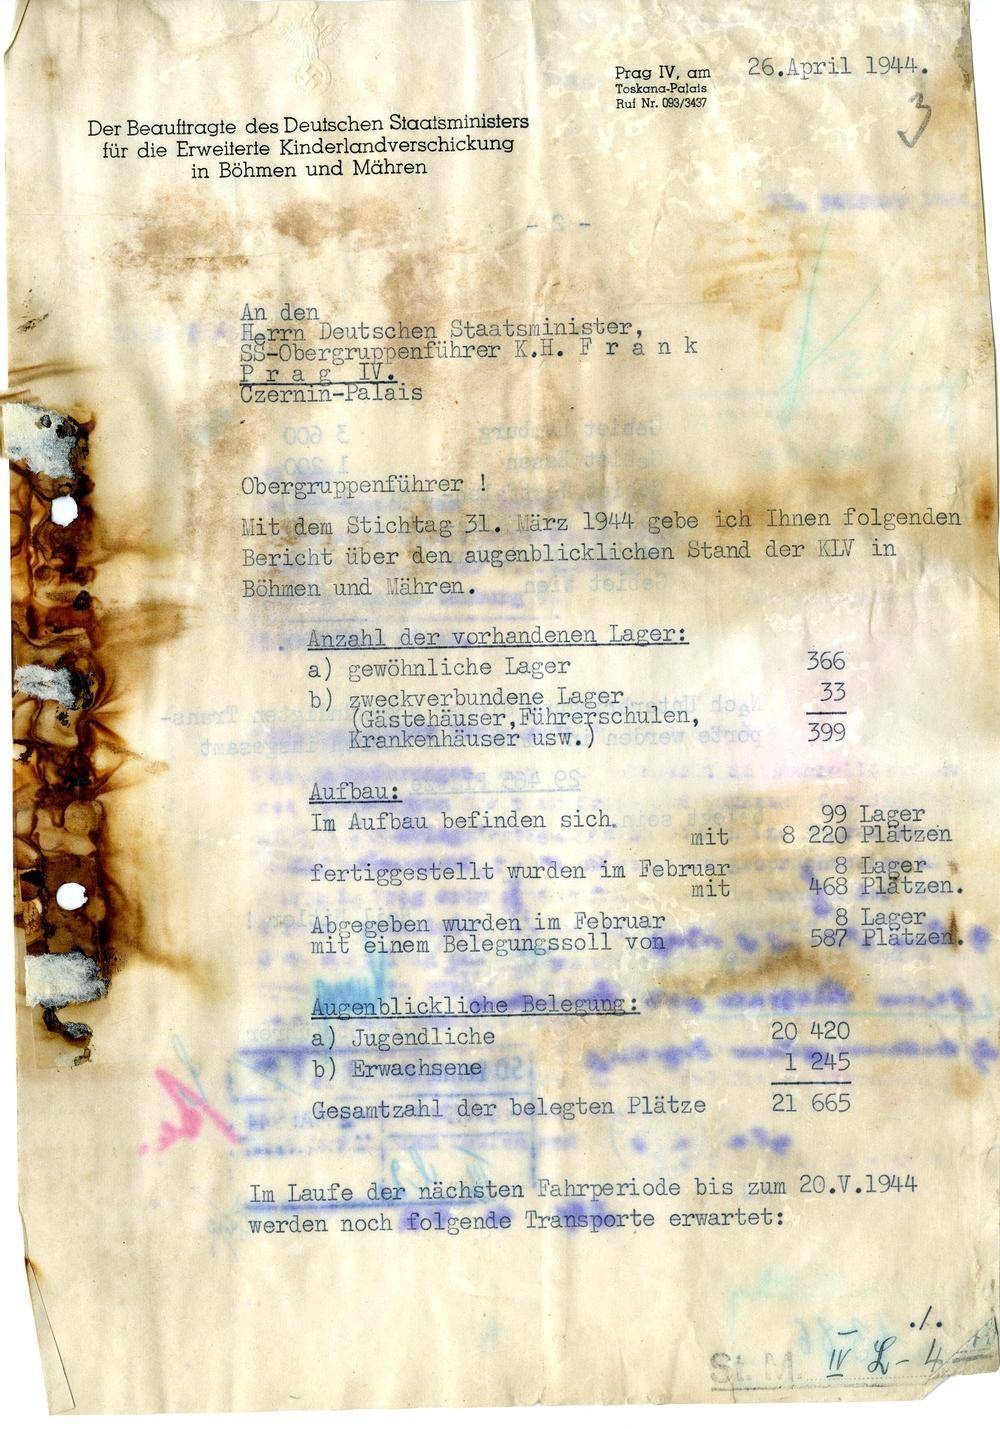 Prag IV, am 26.April 1944.
Toskana-Palais
Ruf Nr. 093/3437
3
Der Beauftragte des Deutschen Staatsministers
für die Erweiterte Kinderlandverschickung
in Böhmen und Mähren
- 2 -
An den
Herrn Deutschen Staatsminister,
SS-Obergruppenführer K.H. F r a n k
P r a g IV.
Czernin-Palais
Obergruppenführer !
Mit dem Stichtag 31. März 1944 gebe ich Ihnen folgenden
Bericht über den augenblicklichen Stand der KLV in
Böhmen und Mähren.
Anzahl der vorhandenen Lager:
a) gewöhnliche Lager 366
b) zweckverbundene Lager 33
(Gästehäuser,Führerschulen,
Krankenhäuser usw.) 399
Aufbau:
Im Aufbau befinden sich 99 Lager
mit 8 220 Plätzen
fertiggestellt wurden im Februar 8 Lager
mit 468 Plätzen.
Abgegeben wurden im Februar 8 Lager
mit einem Belegungssoll von 587 Plätzen.
Augenblickliche Belegung:
a) Jugendliche 20 420
b) Erwachsene 1 245
Gesamtzahl der belegten Plätze 21 665
Im Laufe der nächsten Fahrperiode bis zum 20.V.1944
werden noch folgende Transporte erwartet:
./.
St. M. IV L - 4